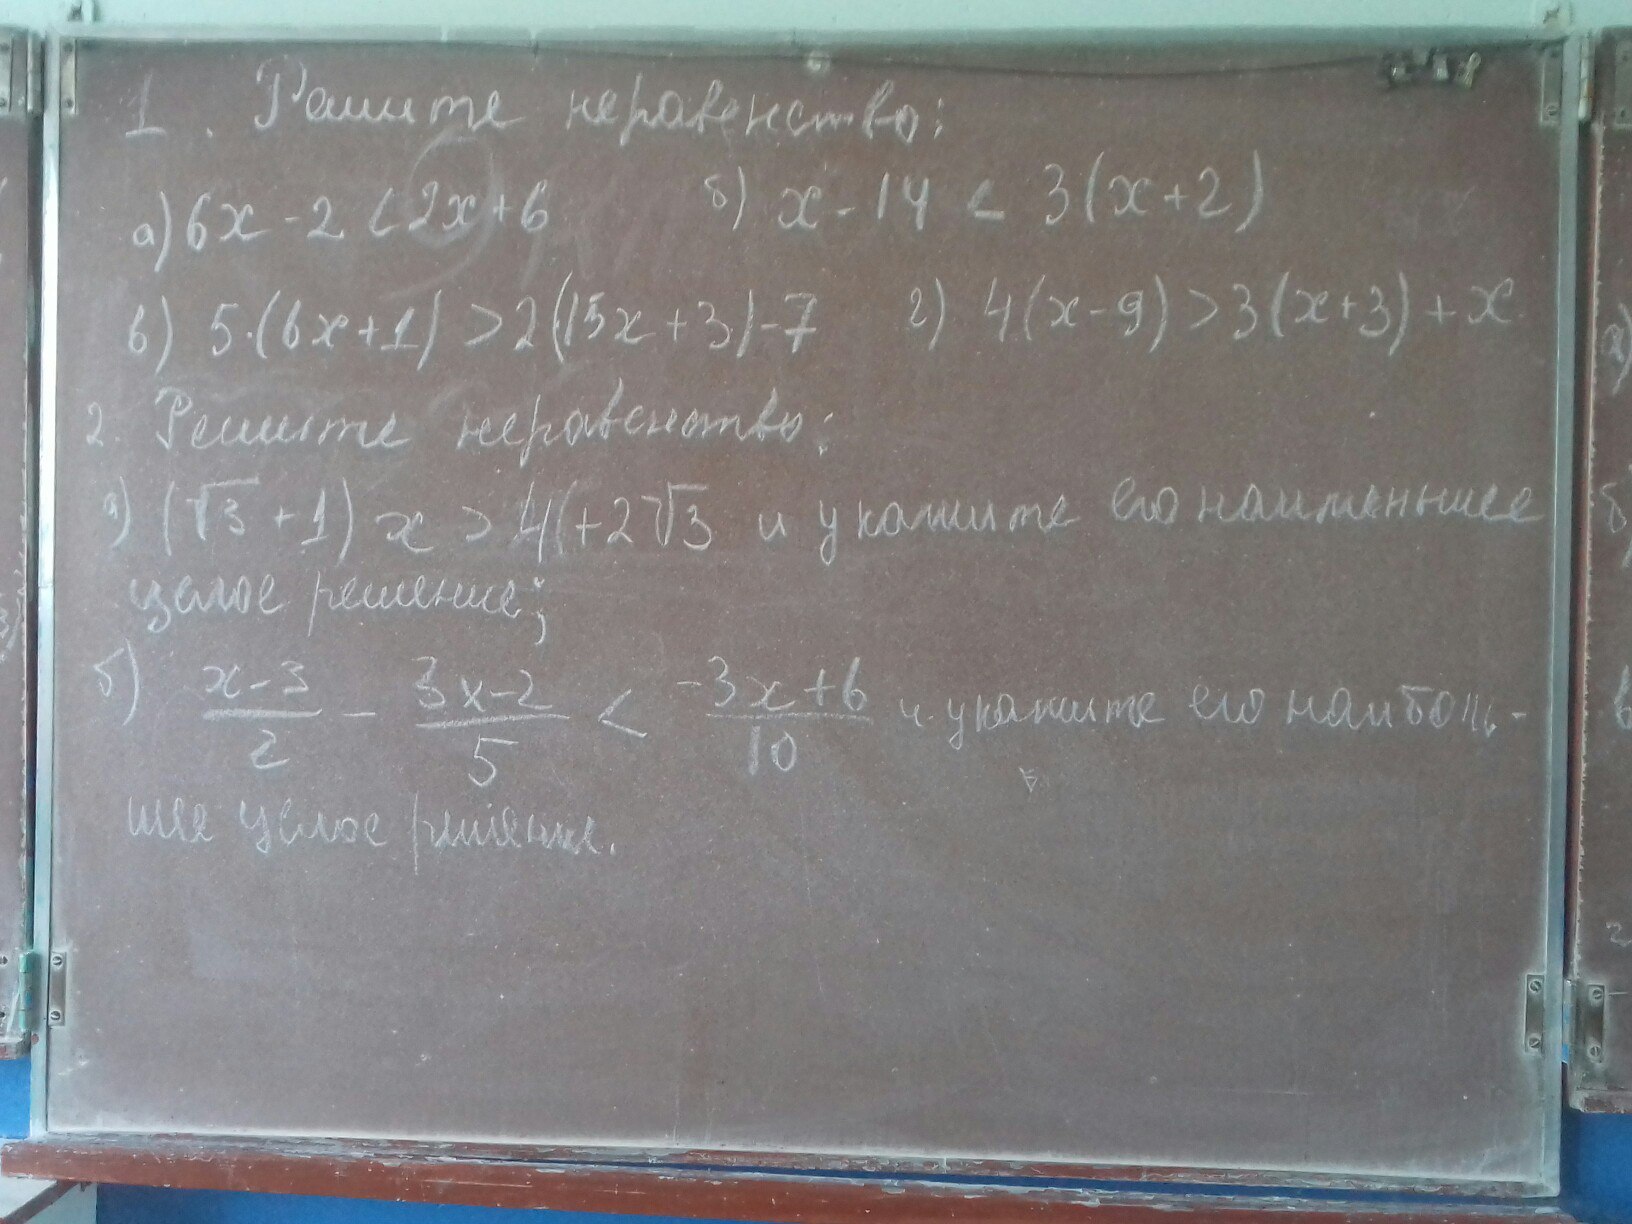 1. Решите неравенство:
а) 6x - 2 < 2x + 6 б) x - 14 < 3(x+2)
в) 5·(6x+1) > 2(15x+3)-7 г) 4(x-9) > 3(x+3) + x
2. Решите неравенство:
а) (√3 + 1) x > 4(+2√3 и укажите его наименьшее
целое решение;
б) (x-3)/2 - (3x-2)/5 < (-3x+6)/10 и укажите его наиболь-
шее целое решение.